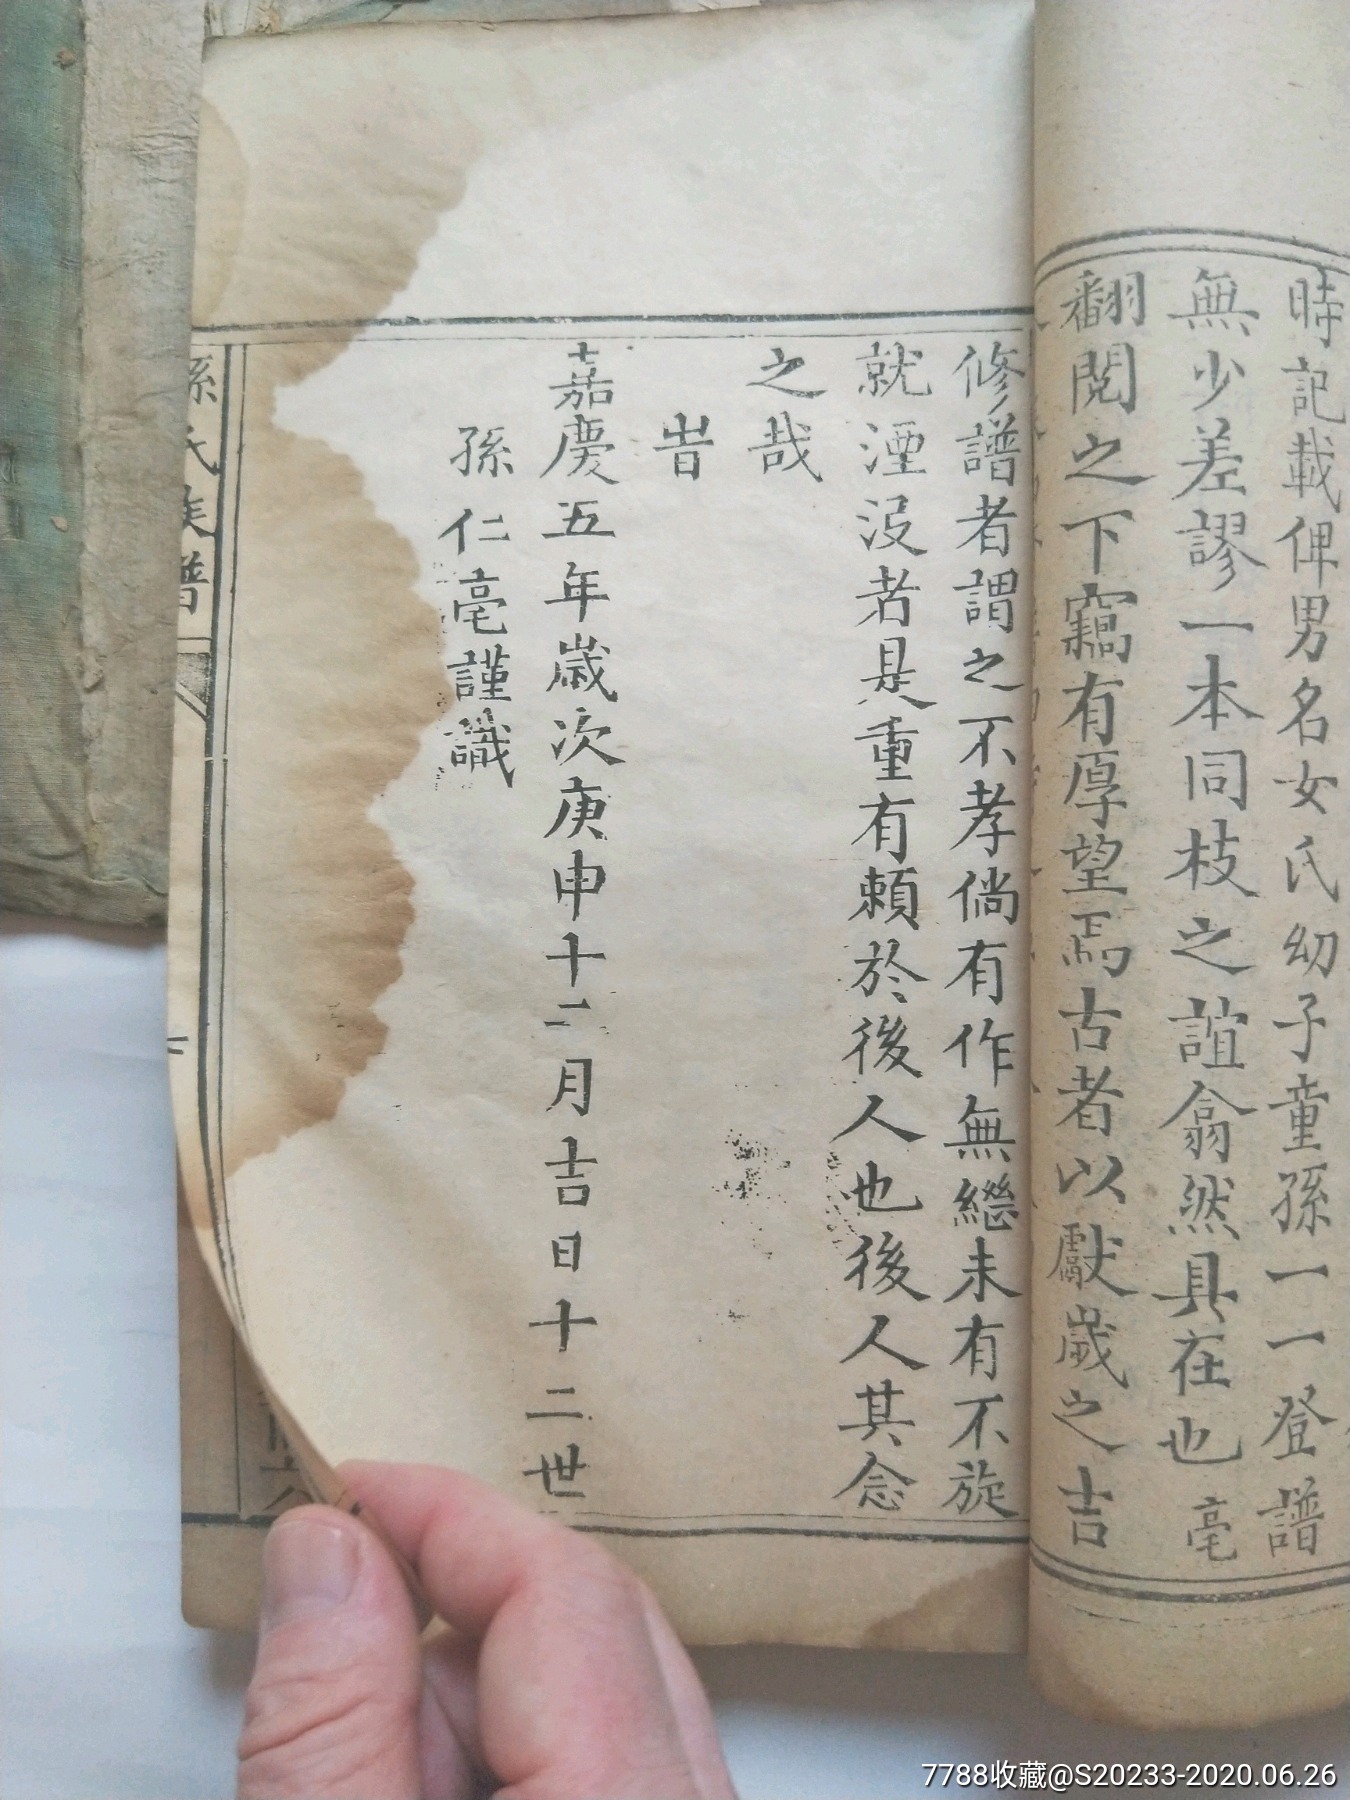 時記載俾男名女氏幼子童孫一一登譜
無少差謬一本同枝之誼翕然具在也亳
翻閱之下竊有厚望焉古者以獻歲之吉
修譜者謂之不孝倘有作無繼未有不旋
就湮没者是重有賴於後人也後人其念
之哉
旹
嘉慶五年歲次庚申十二月吉日十二世
孫仁亳謹識
孫氏族譜
7788收藏@S20233-2020.06.26